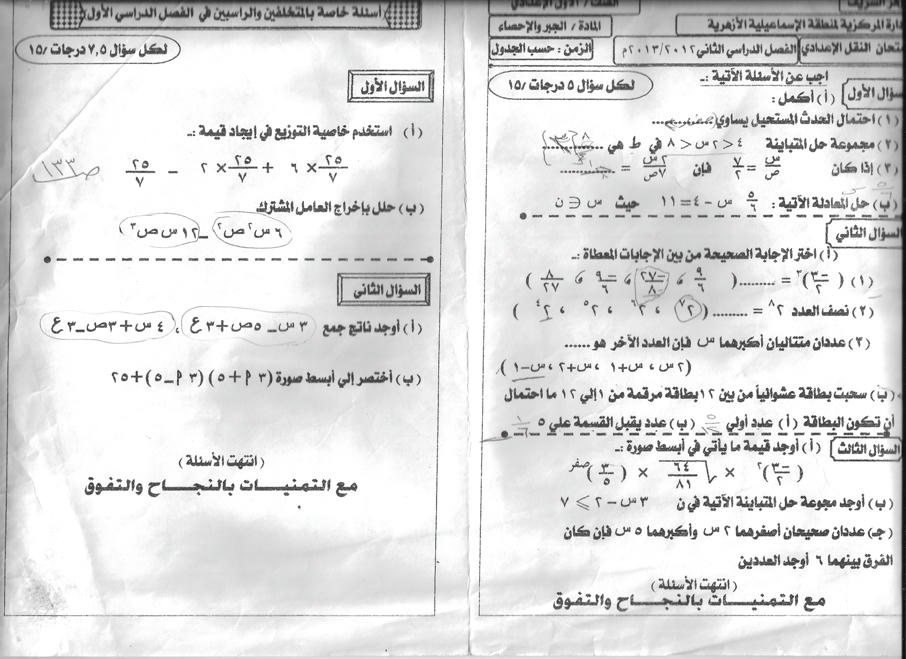 الأزهر الشريف
الصف / الأول الإعدادي
الإدارة المركزية لمنطقة الإسماعيلية الأزهرية
المادة / الجبر والإحصاء
امتحان النقل الإعدادي
الفصل الدراسي الثاني ٢٠١٢/٢٠١٣م
الزمن : حسب الجدول
اجب عن الأسئلة الآتية :ـ
لكل سؤال ٥ درجات /١٥
السؤال الأول
(أ) أكمل :
(١) احتمال الحدث المستحيل يساوي ..........
(٢) مجموعة حل المتباينة ٤ < ٢س < ٨ في ط هي ..........
(٣) إذا كان س/ص = ٢/٧ فإن ٢س/٧ص = ..........
(ب) حل المعادلة الآتية : ٥/٦ س - ٤ = ١١ حيث س ∈ ن
السؤال الثاني
(أ) اختر الإجابة الصحيحة من بين الإجابات المعطاة :ـ
(١) (-٣/٢)^٣ = ......... ( ٩/٦ ، -٩/٦ ، -٢٧/٨ ، ٨/٢٧ )
(٢) نصف العدد ٢^٨ = ......... ( ٢^٧ ، ٢^٦ ، ٢^٥ ، ٢^٤ )
(٣) عددان متتاليان أكبرهما س فإن العدد الآخر هو ......
(٢س ، س+١ ، س+٢ ، س-١)
(ب) سحبت بطاقة عشوائياً من بين ١٢ بطاقة مرقمة من ١ إلي ١٢ ما احتمال
أن تكون البطاقة (أ) عدد أولي (ب) عدد يقبل القسمة علي ٥
السؤال الثالث
(أ) أوجد قيمة ما يأتي في أبسط صورة :ـ
(-٣/٢)^٢ × √(٦٤/٨١) × (٣/٥)^صفر
(ب) أوجد مجوعة حل المتباينة الآتية في ن ٣س - ٢ ≥ ٧
(جـ) عددان صحيحان أصغرهما ٢س وأكبرهما ٥س فإن كان
الفرق بينهما ٦ أوجد العددين
(انتهت الأسئلة)
مع التمنيـــات بالنجـــاح والتفوق
أسئلة خاصة بالمتخلفين والراسبين في الفصل الدراسي الأول
لكل سؤال ٧,٥ درجات /١٥
السؤال الأول
(أ) استخدم خاصية التوزيع في إيجاد قيمة :ـ
٢٥/٧ × ٦ + ٢٥/٧ × ٢ - ٢٥/٧
ص ١٣٣
(ب) حلل بإخراج العامل المشترك
٦س^٢ص^٢ - ١٢س ص^٣
السؤال الثانى
(أ) أوجد ناتج جمع ٣س - ٥ص + ٣ع ، ٤س + ٣ص - ٣ع
(ب) أختصر إلي أبسط صورة (٣أ + ٥)(٣أ - ٥) + ٢٥
(انتهت الأسئلة)
مع التمنيـــات بالنجـــاح والتفوق